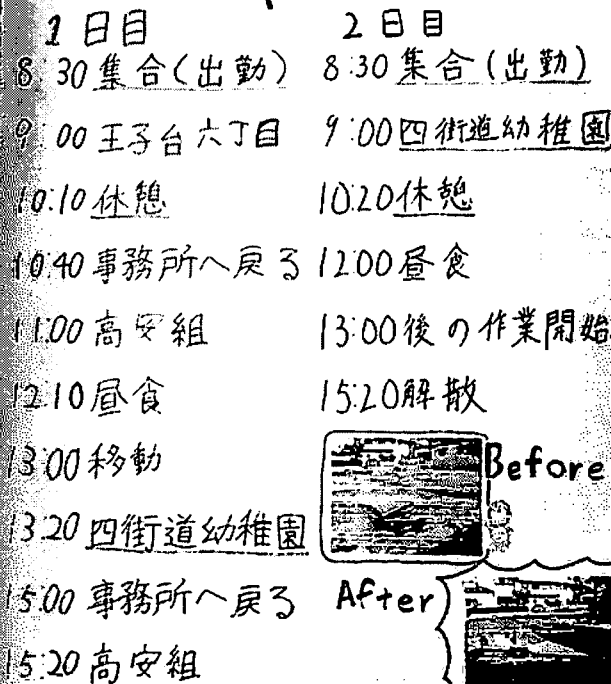 1日目
8:30集合(出勤)
9:00王子台六丁目
10:10休憩
10:40事務所へ戻る
11:00高安組
12:10昼食
13:00移動
13:20四街道幼稚園
15:00事務所へ戻る
15:20高安組
2日目
8:30集合(出勤)
9:00四街道幼稚園
10:20休憩
12:00昼食
13:00後の作業開始
15:20解散
Before
After